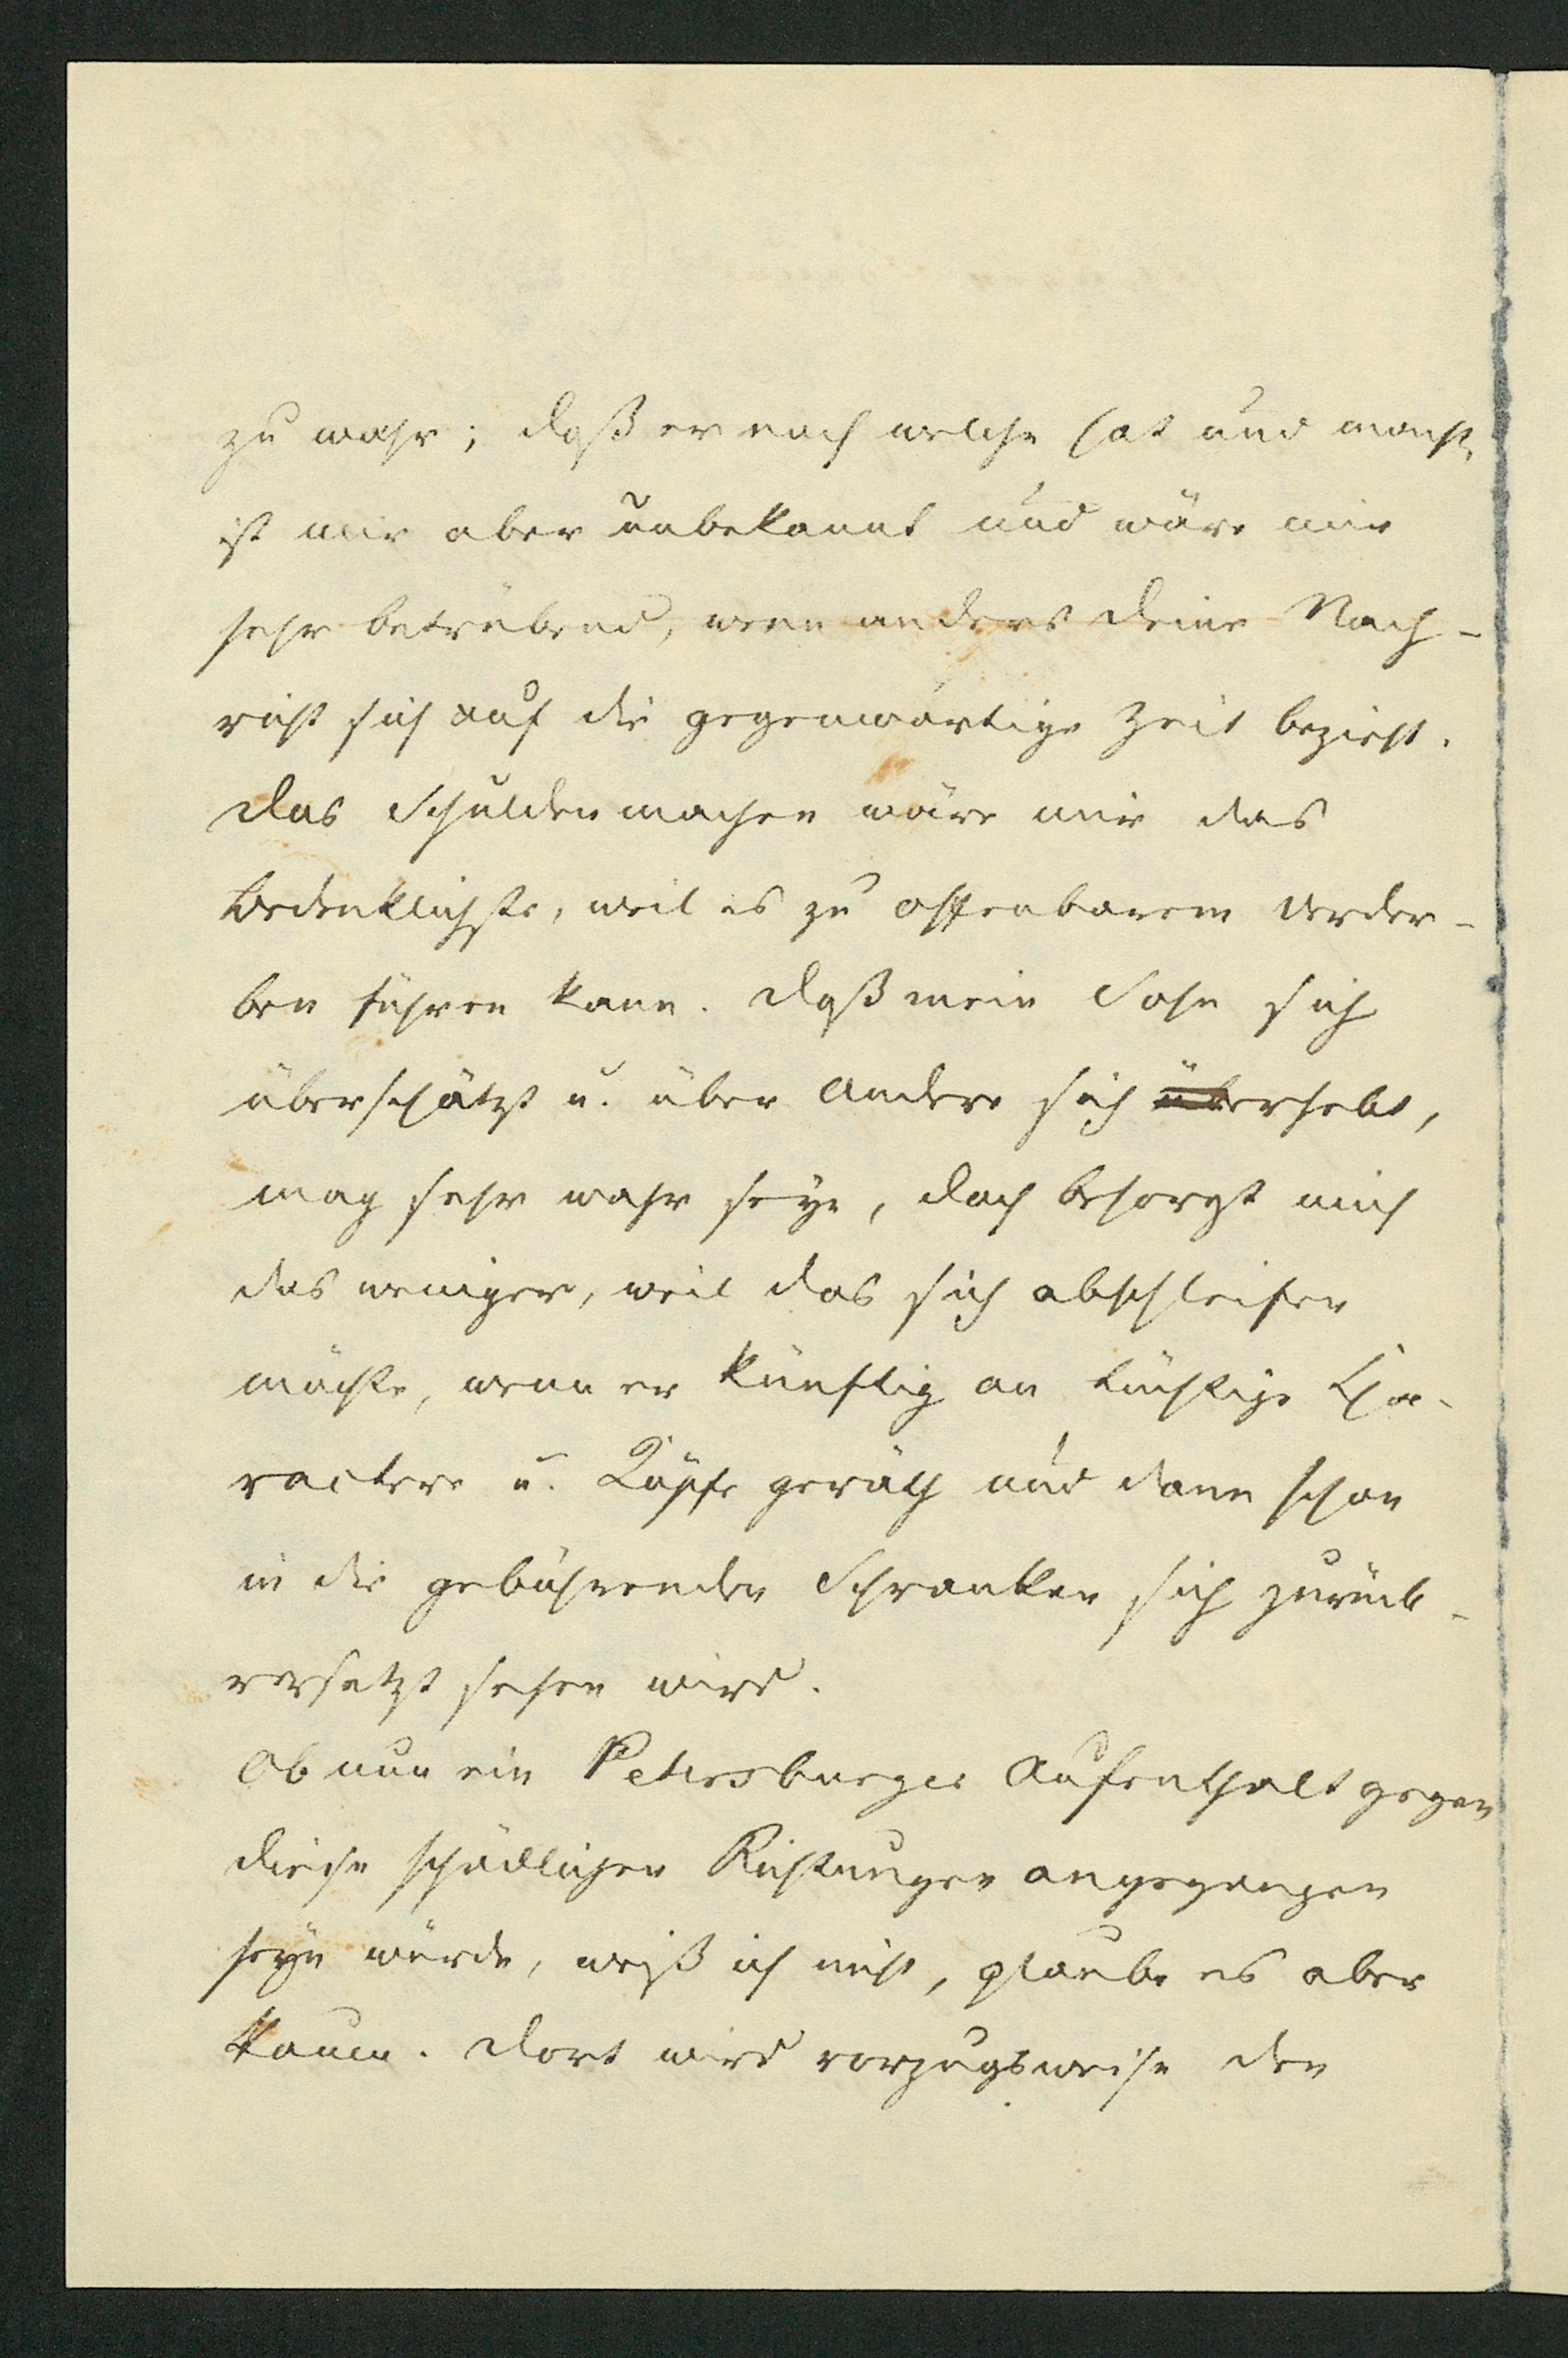 zu wahr; daß er noch welche hat und macht,
ist mir aber unbekannt und wäre mir
sehr betrübend, wenn anders Deine Nach-
richt sich auf die gegenwärtige Zeit bezieht.
Das Schuldenmachen wäre mir das
Bedenklichste, weil es zu offenbarem Verder-
ben führen kann. Daß mein Sohn sich
überschätzt u. über Andere sich überhebt,
mag sehr wahr seyn, doch besorgt mich
das weniger, weil das sich abschleifen
möchte, wenn er künftig an tüchtige Cha-
ractere u. Köpfe geräth und dann schon
in die gebührenden Schranken sich zurück-
versetzt sehen wird.
Ob nun ein Petersburger Aufenthalt gegen
diese schädlichen Richtungen angegangen
seyn würde, weiß ich nicht, glaube es aber
kaum. Dort wird vorzugsweise den